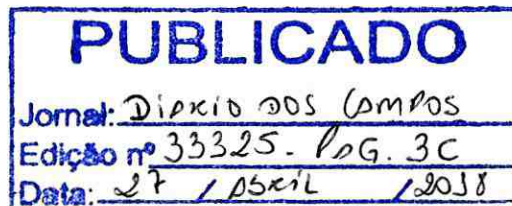 PUBLICADO
Jornal: DIÁRIO DOS CAMPOS
Edição nº 33325 - PAG. 3C
Data: 27 / ABRIL / 2018